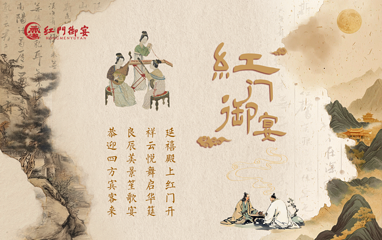 红門御宴
HONGMENYUYAN
红门御宴
延禧殿上红门开
祥云悦舞启华筵
良辰美景笙歌宴
恭迎四方宾客来